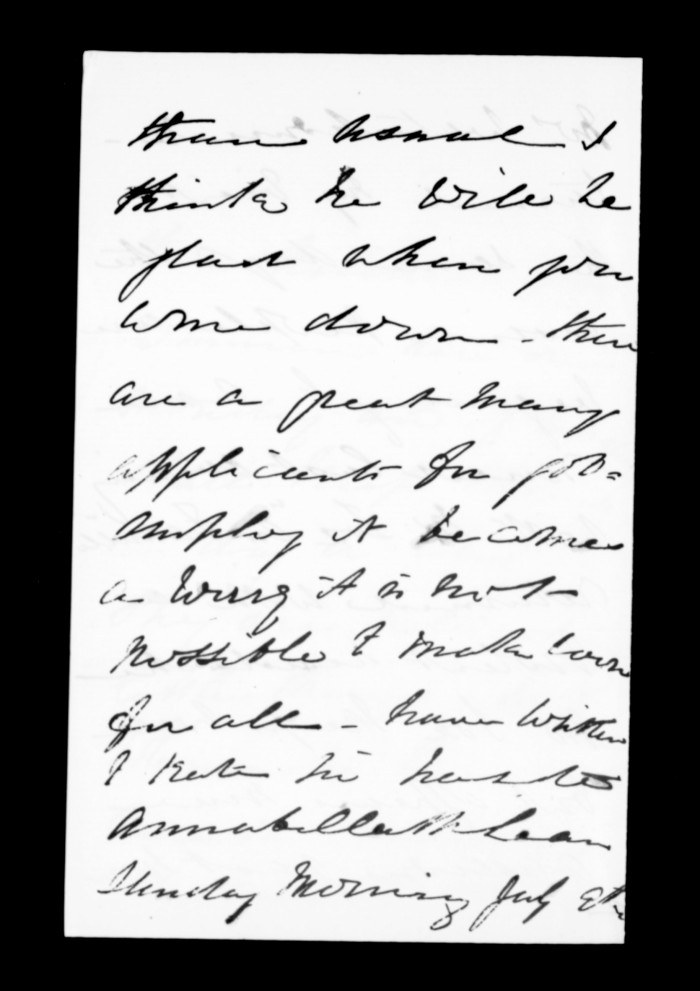 than usual I
think he will be
glad when you
come down - there
are a great many
applicants for gov=
employ it becomes
a worry it is not
possible to make room
for all - have written
to Kate in haste
Annabella McLean
Sunday Morning July 9th